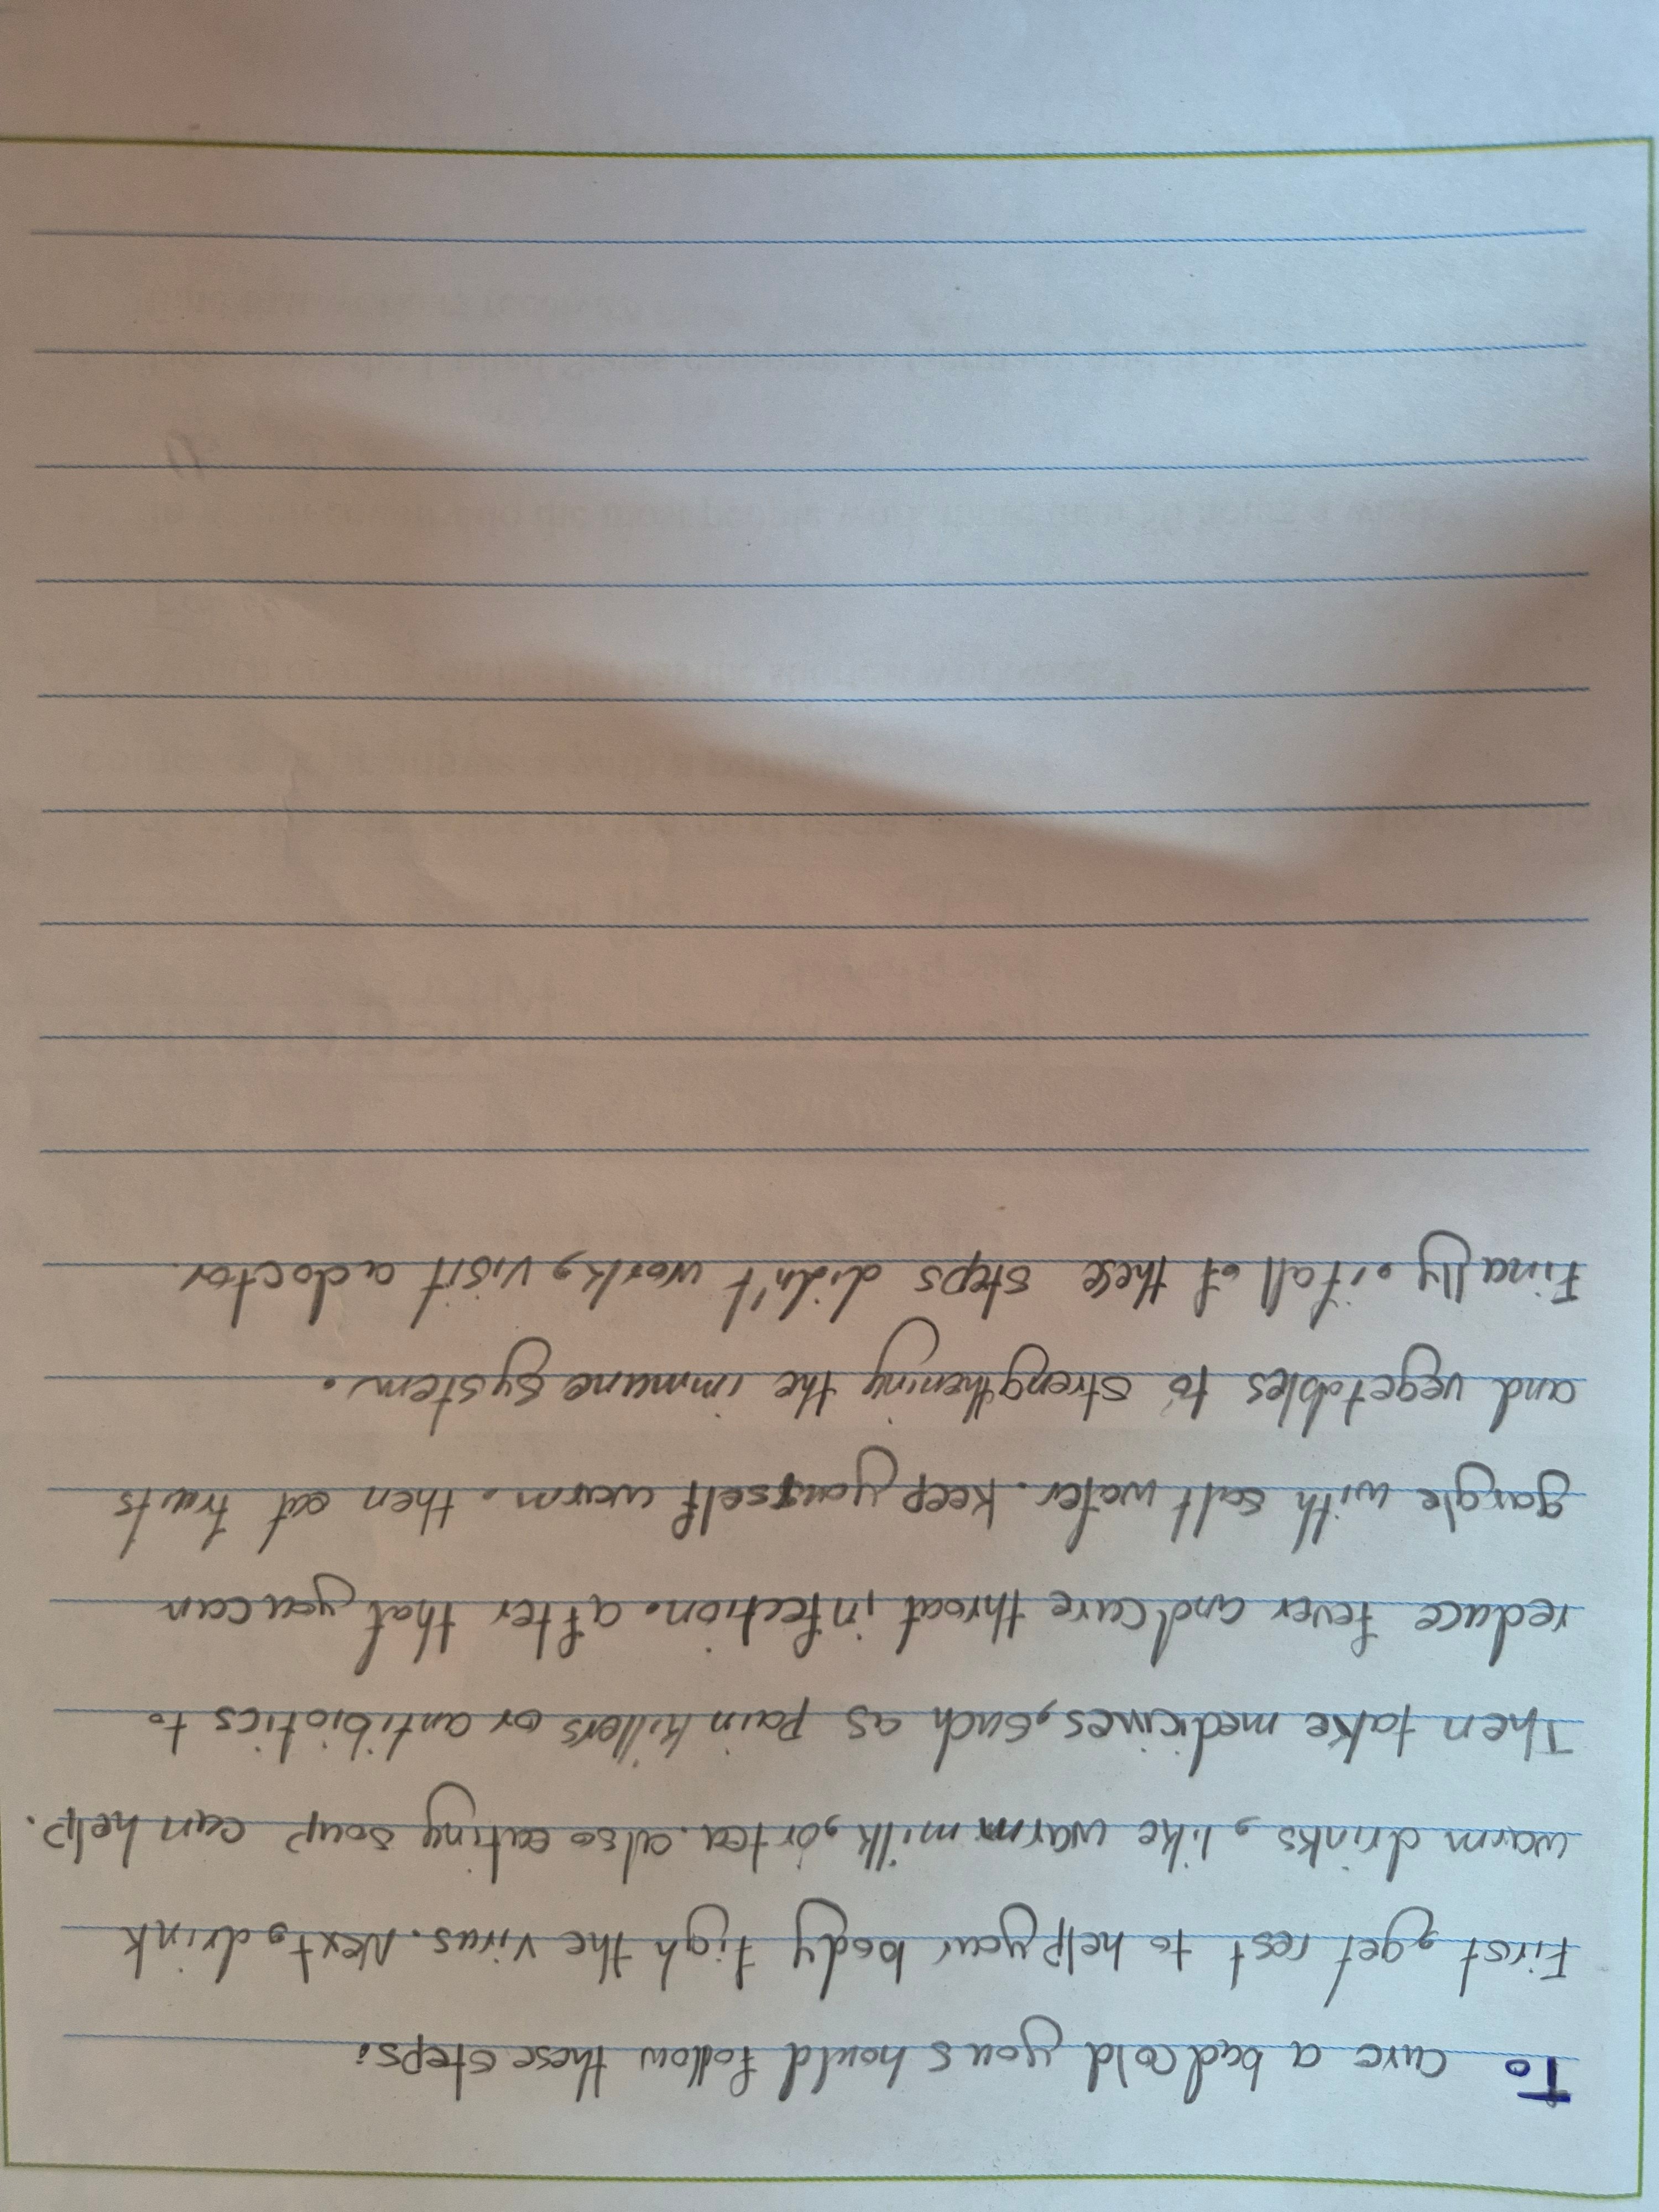 To cure a bad cold you should follow these steps:
First, get rest to help your body figh the virus. Next, drink
warm drinks, like warm milk, or tea. also eating soup can help.
Then take medicines, such as Pain killers or antibiotics to
reduce fever and cure throat infection. after that you can
gargle with salt water. keep yourself warm. then eat fruits
and vegetables to strengthening the immune system.
Finally. if all of these steps didn't work, visit a doctor.